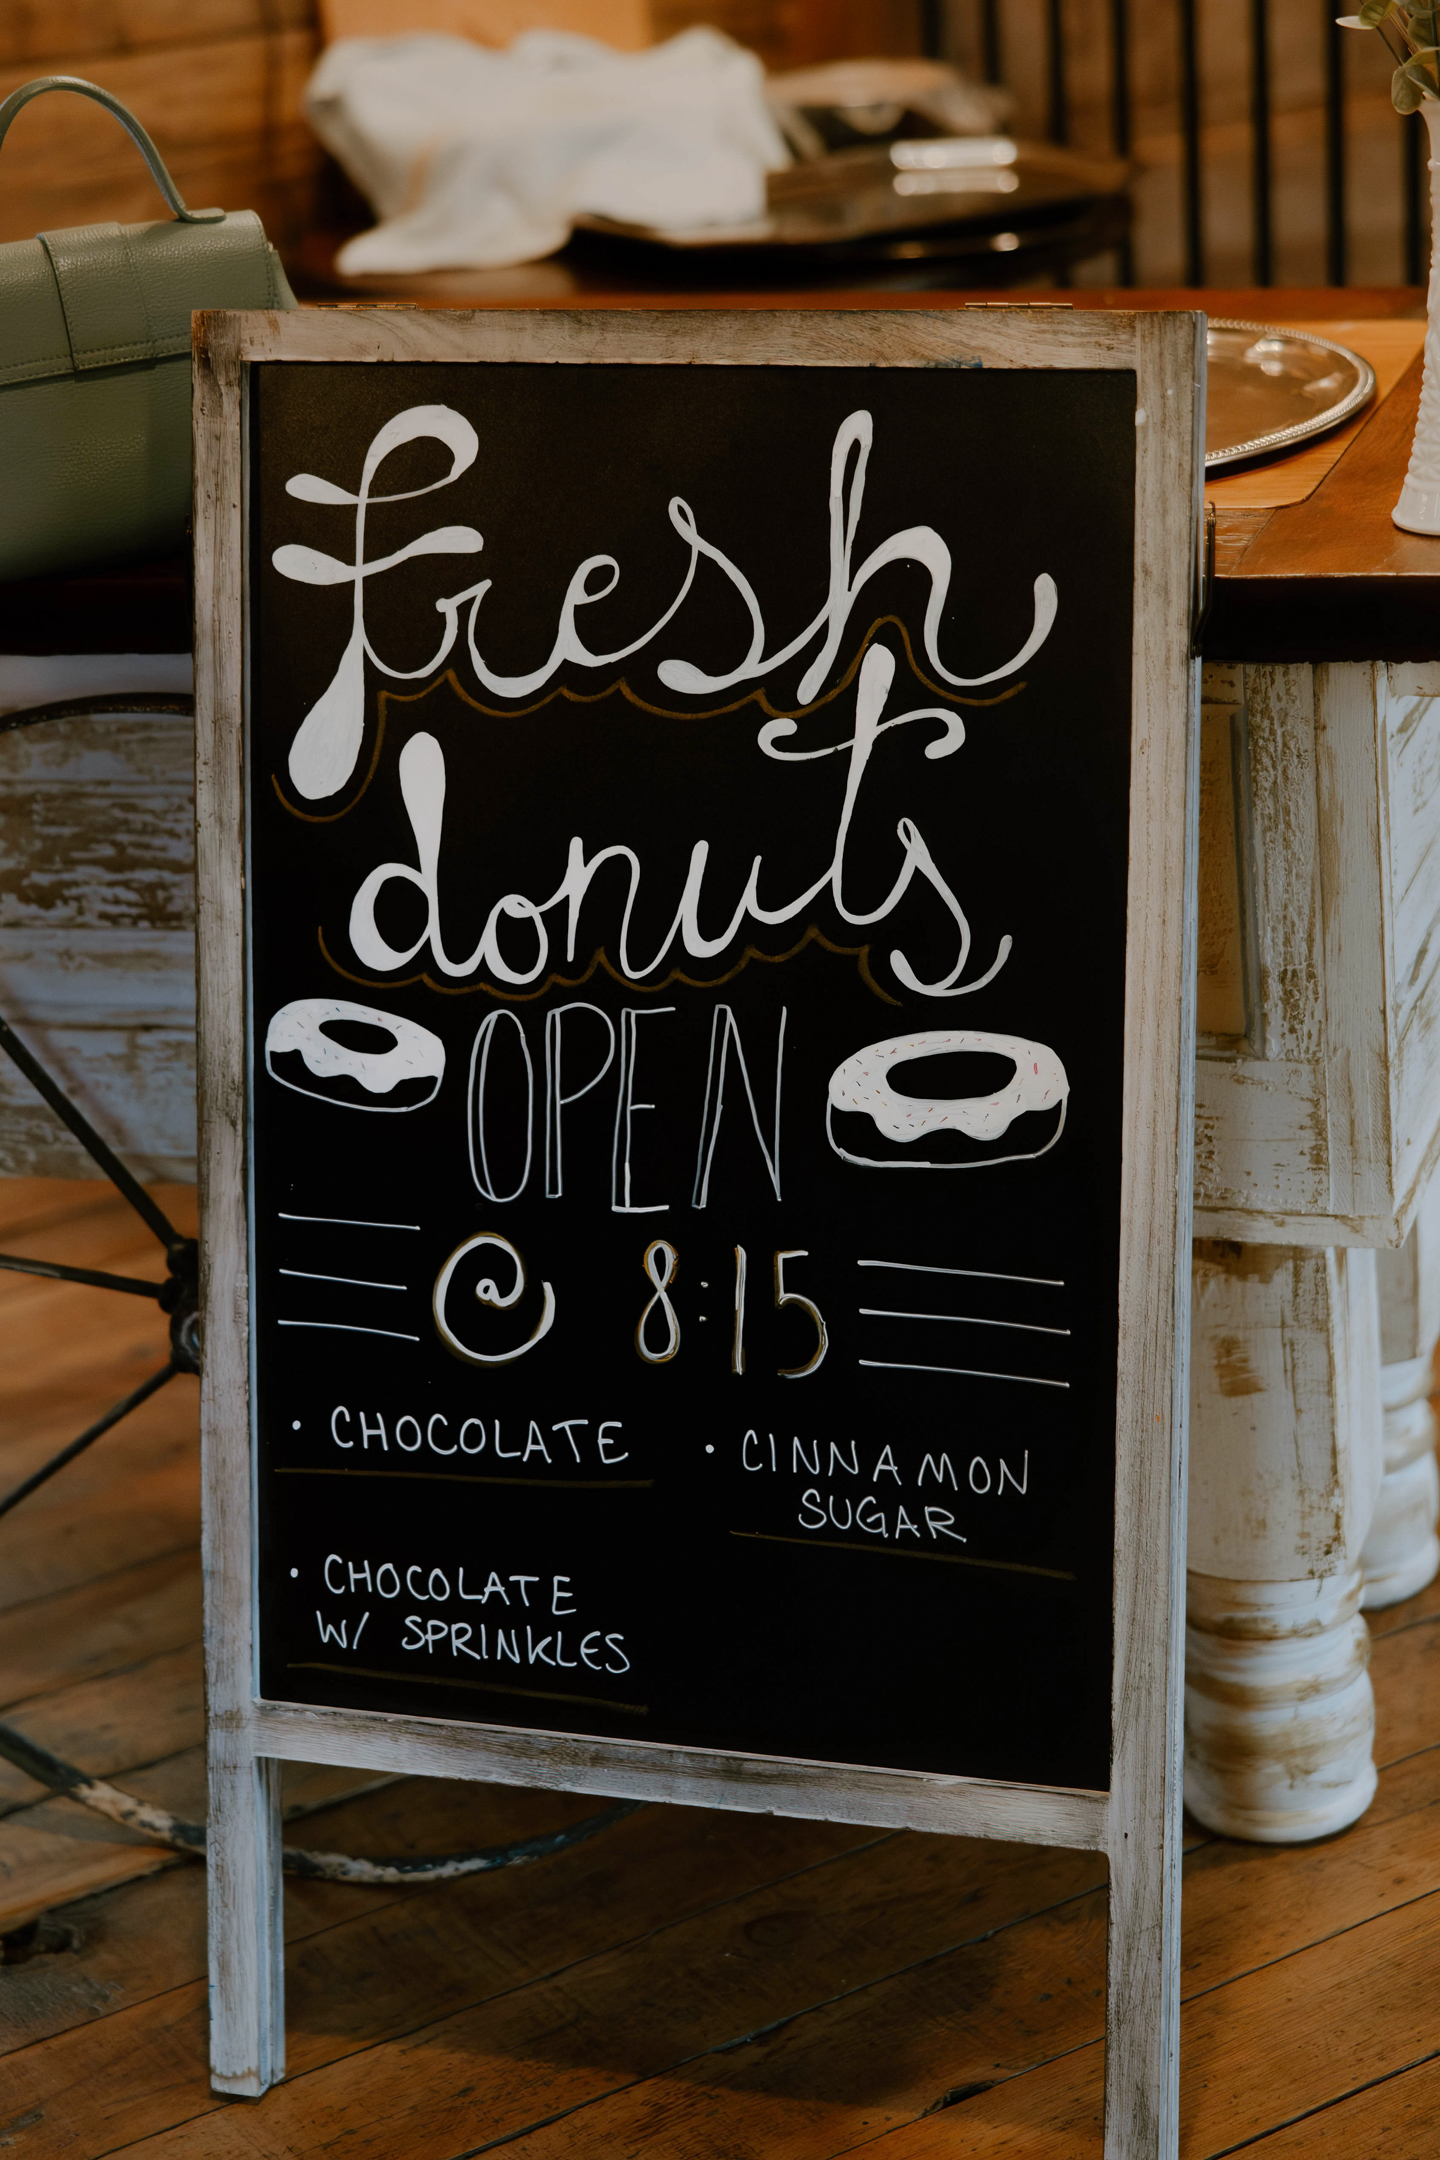 fresh
donuts
OPEN
@ 8:15
• CHOCOLATE
• CHOCOLATE
W/ SPRINKLES
• CINNAMON
SUGAR